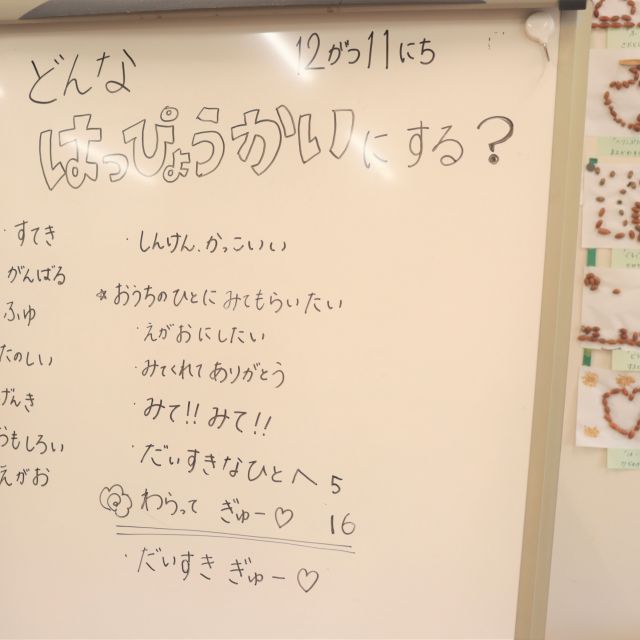 12がつ11にち
どんな
はっぴょうかいにする?
・すてき
がんばる
ふゆ
たのしい
げんき
おもしろい
えがお
・しんけん、かっこいい
☆おうちのひとに みてもらいたい
・えがおにしたい
・みてくれて ありがとう
・みて!! みて!!
・だいすきなひとへ 5
わらって ぎゅー♡ 16
・だいすき ぎゅー♡